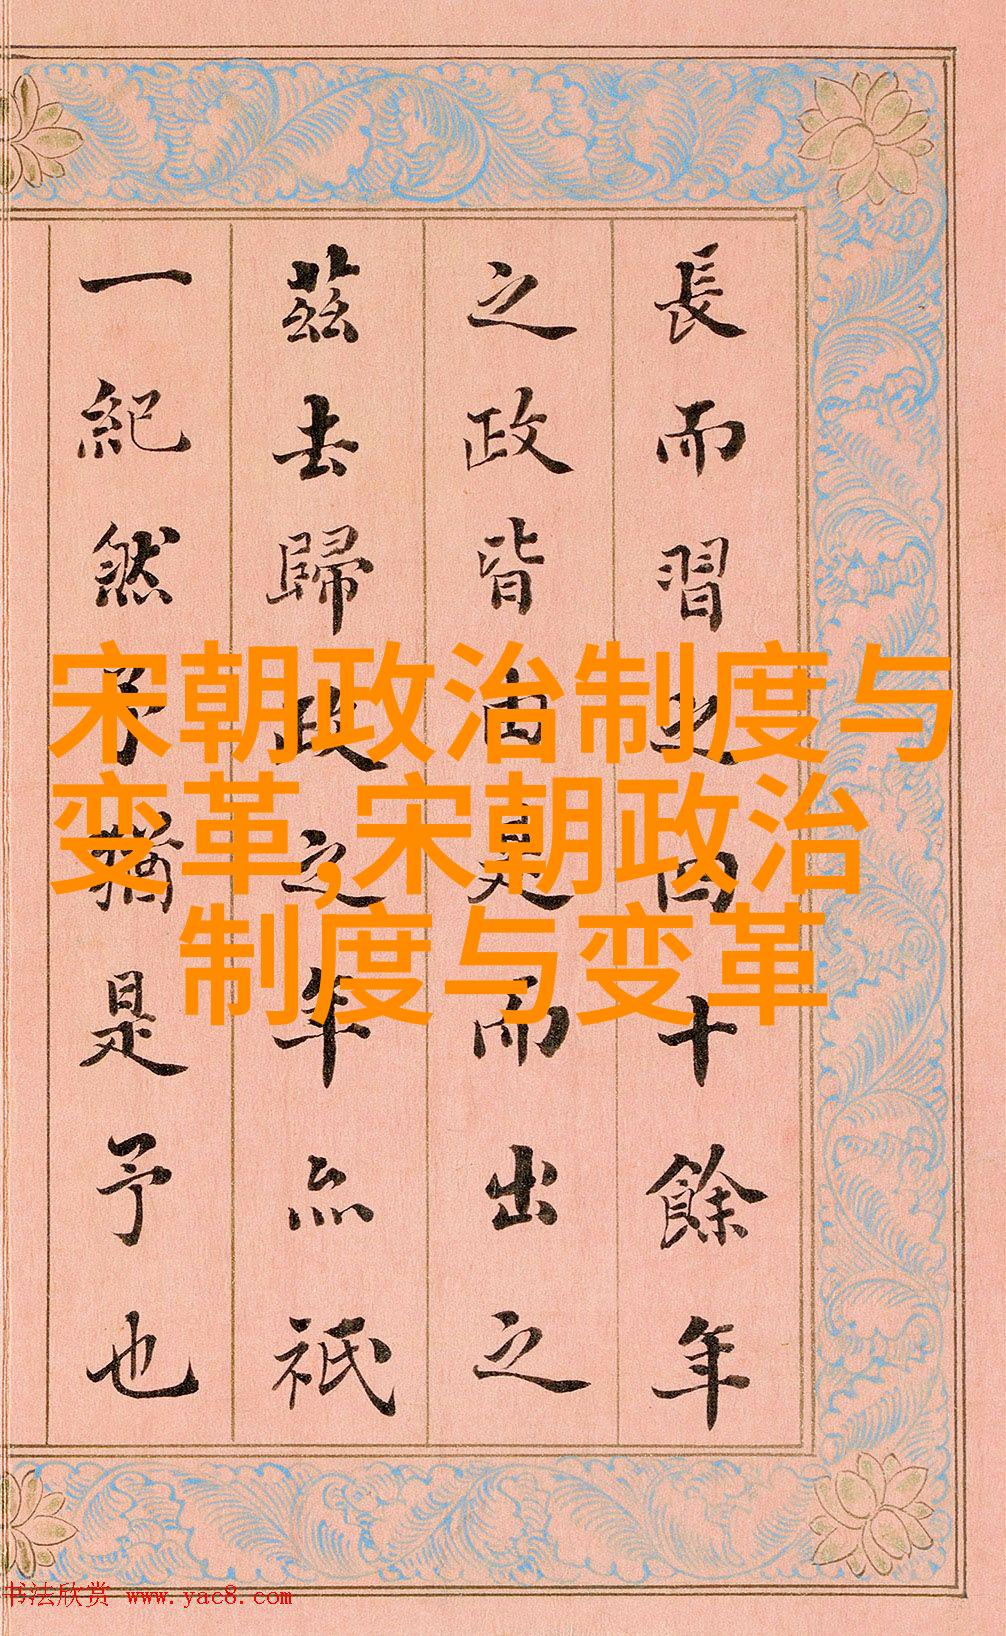 長而習之四十餘年
之政皆由是而出之
茲去歸政之年亦祇
一紀然予猶是予也
宋朝政治制度与
变革,宋朝政治
制度与变革
书法欣赏 www.yac8.com